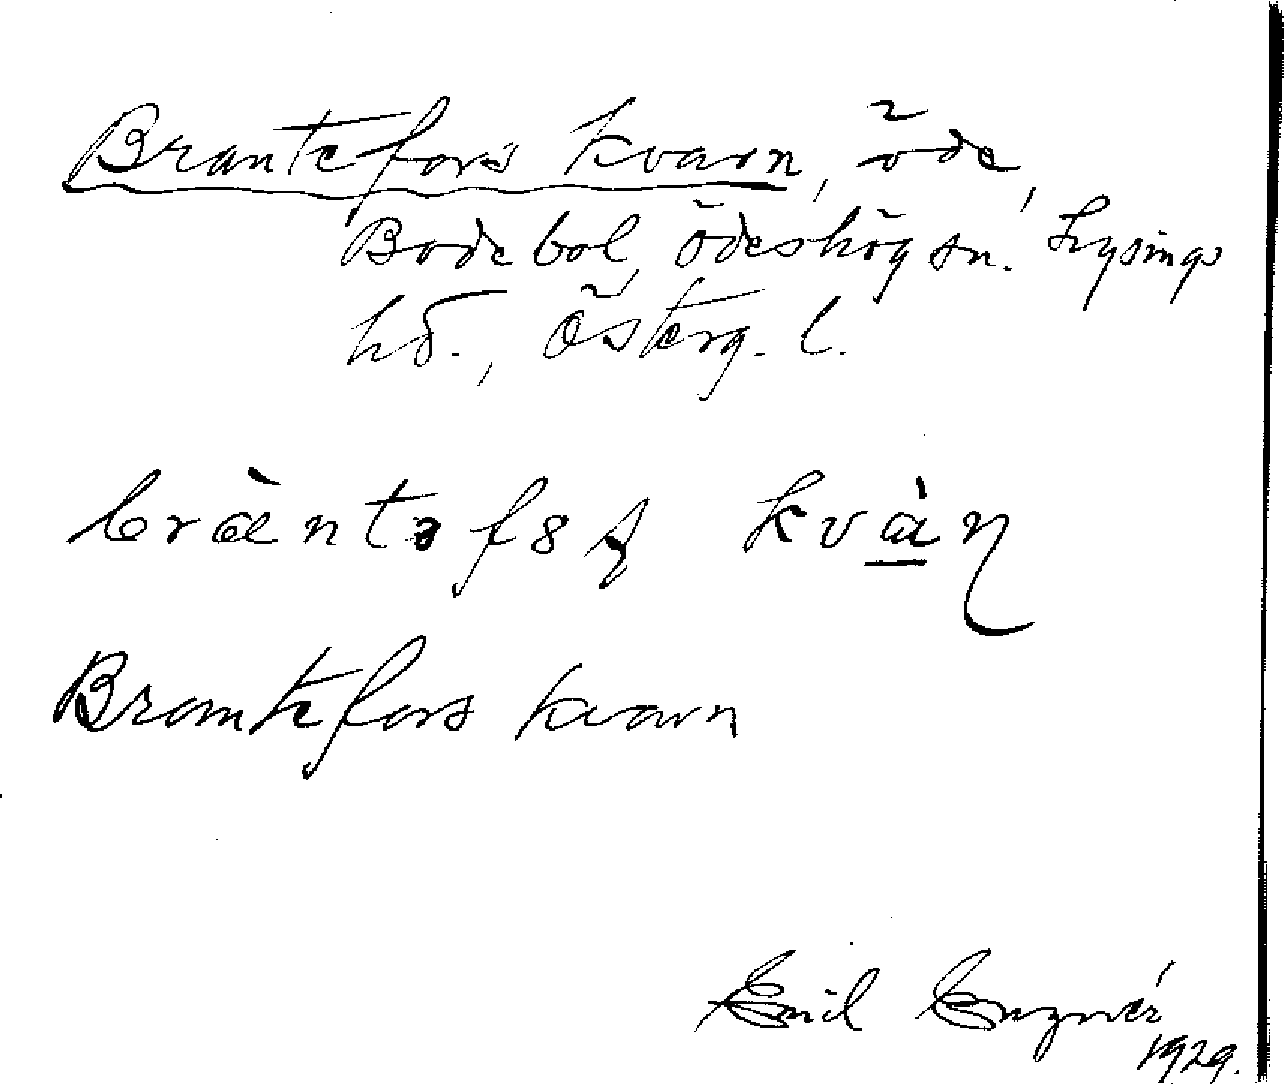 Brantefors kvarn, öde,
Bodebol, Ödeshög sn. Lysings
hd., Österg. l.
kvàn
Brantefors kvarn
Emil Engnér
1929.